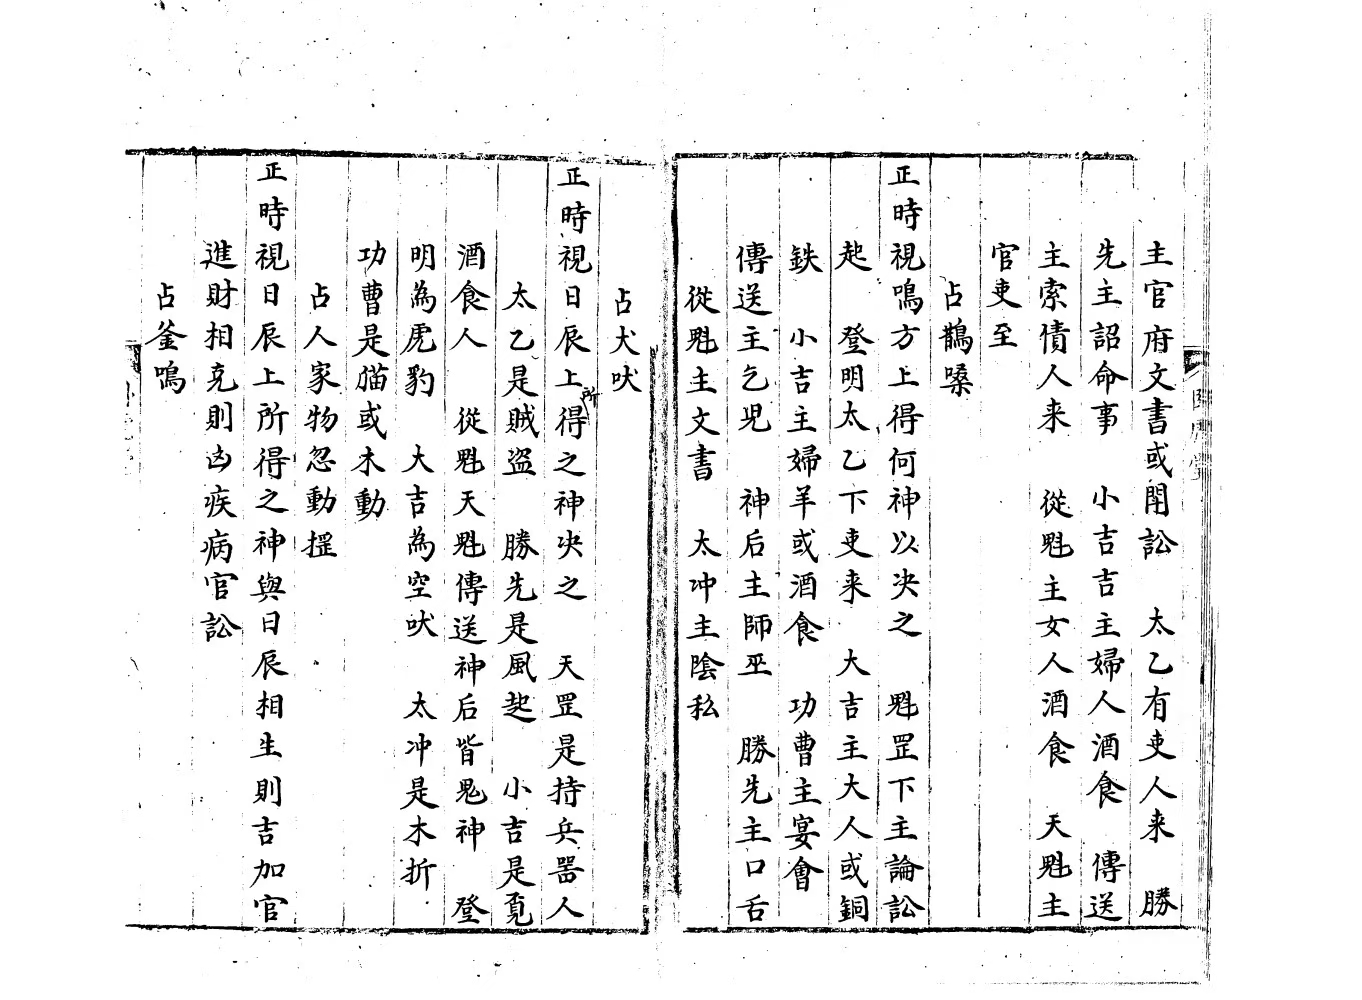 主官府文書或鬪訟　太乙有吏人来　勝
先主詔命事　小吉吉主婦人酒食　傳送
主索債人来　從魁主女人酒食　天魁主
官吏至
占鵲噪
正時視鳴方上得何神以决之　魁罡下主論訟
起　登明太乙下吏来　大吉主大人或銅
鉄　小吉主婦羊或酒食　功曹主宴會
傳送主乞児　神后主師巫　勝先主口舌
從魁主文書　太冲主陰私
占犬吠
正時視日辰上所得之神决之　天罡是持兵噐人
太乙是賊盗　勝先是風起　小吉是覓
酒食人　從魁天魁傳送神后皆鬼神　登
明為虎豹　大吉為空吠　太冲是木折
功曹是猫或木動
占人家物忽動揺
正時視日辰上所得之神與日辰相生則吉加官
進財相克則凶疾病官訟
占釜鳴